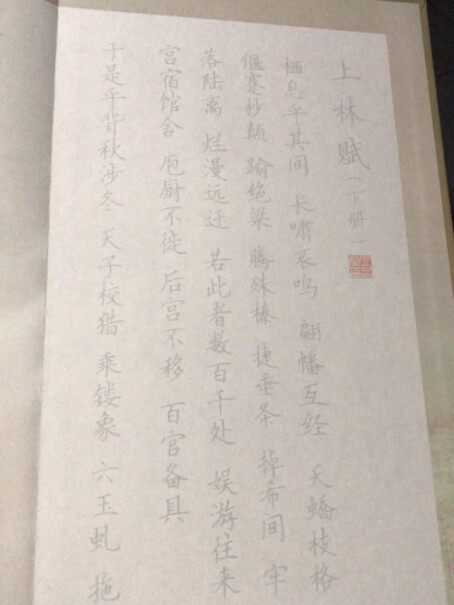 上林赋(下册)
栖息乎其间 长啸哀鸣 翩幡互经 夭蟠枝格
偃蹇杪颠 踰绝梁 腾殊榛 捷垂条 掉希间 牢
落陆离 烂漫远迁 若此者数百千处 娱游往来
宫宿馆舍 庖厨不徙 后宫不移 百官备具
于是乎背秋涉冬 天子校猎 乘镂象 六玉虬 拖